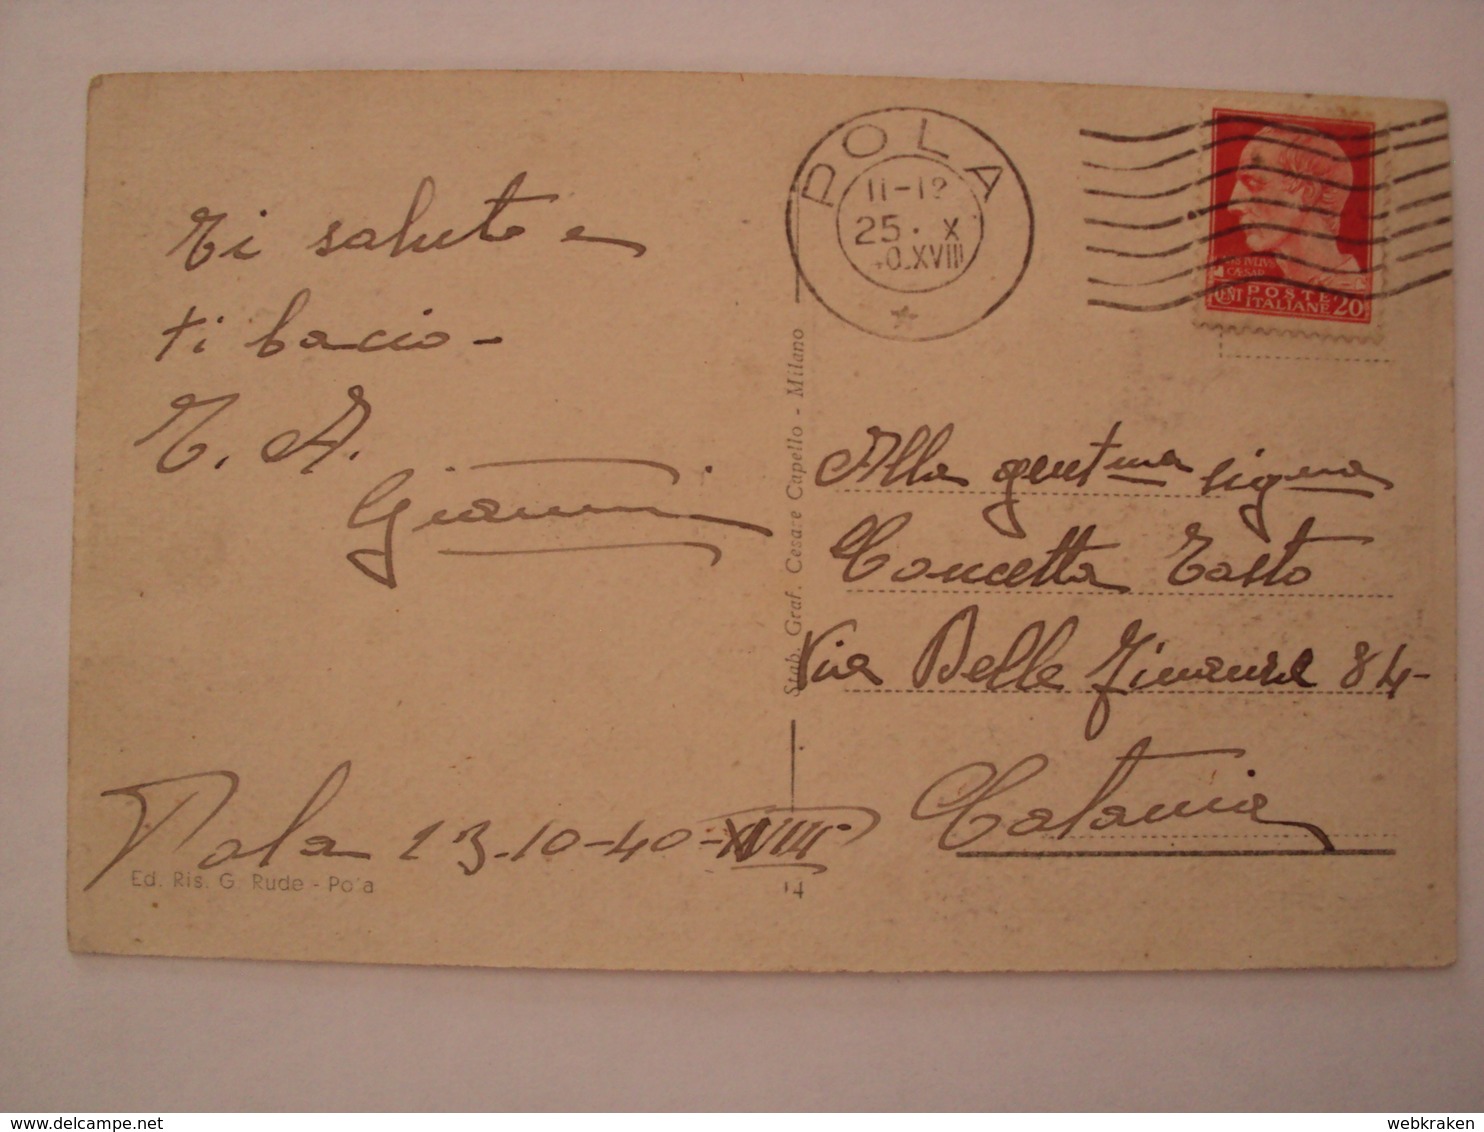 Ti saluto e
ti bacio -
T. A.
Gianni
Pola 23-10-40-XVIII°
Ed. Ris. G. Rude - Pola
Stab. Graf. Cesare Capello - Milano
14
POLA
11-12
25. X
40.XVIII
IVLIVS
CAESAR
CENT POSTE
ITALIANE 20
Alla gent.ma sig.na
Concetta Tasto
Via Belle 84-
Catania
delcampe.net
webkraken